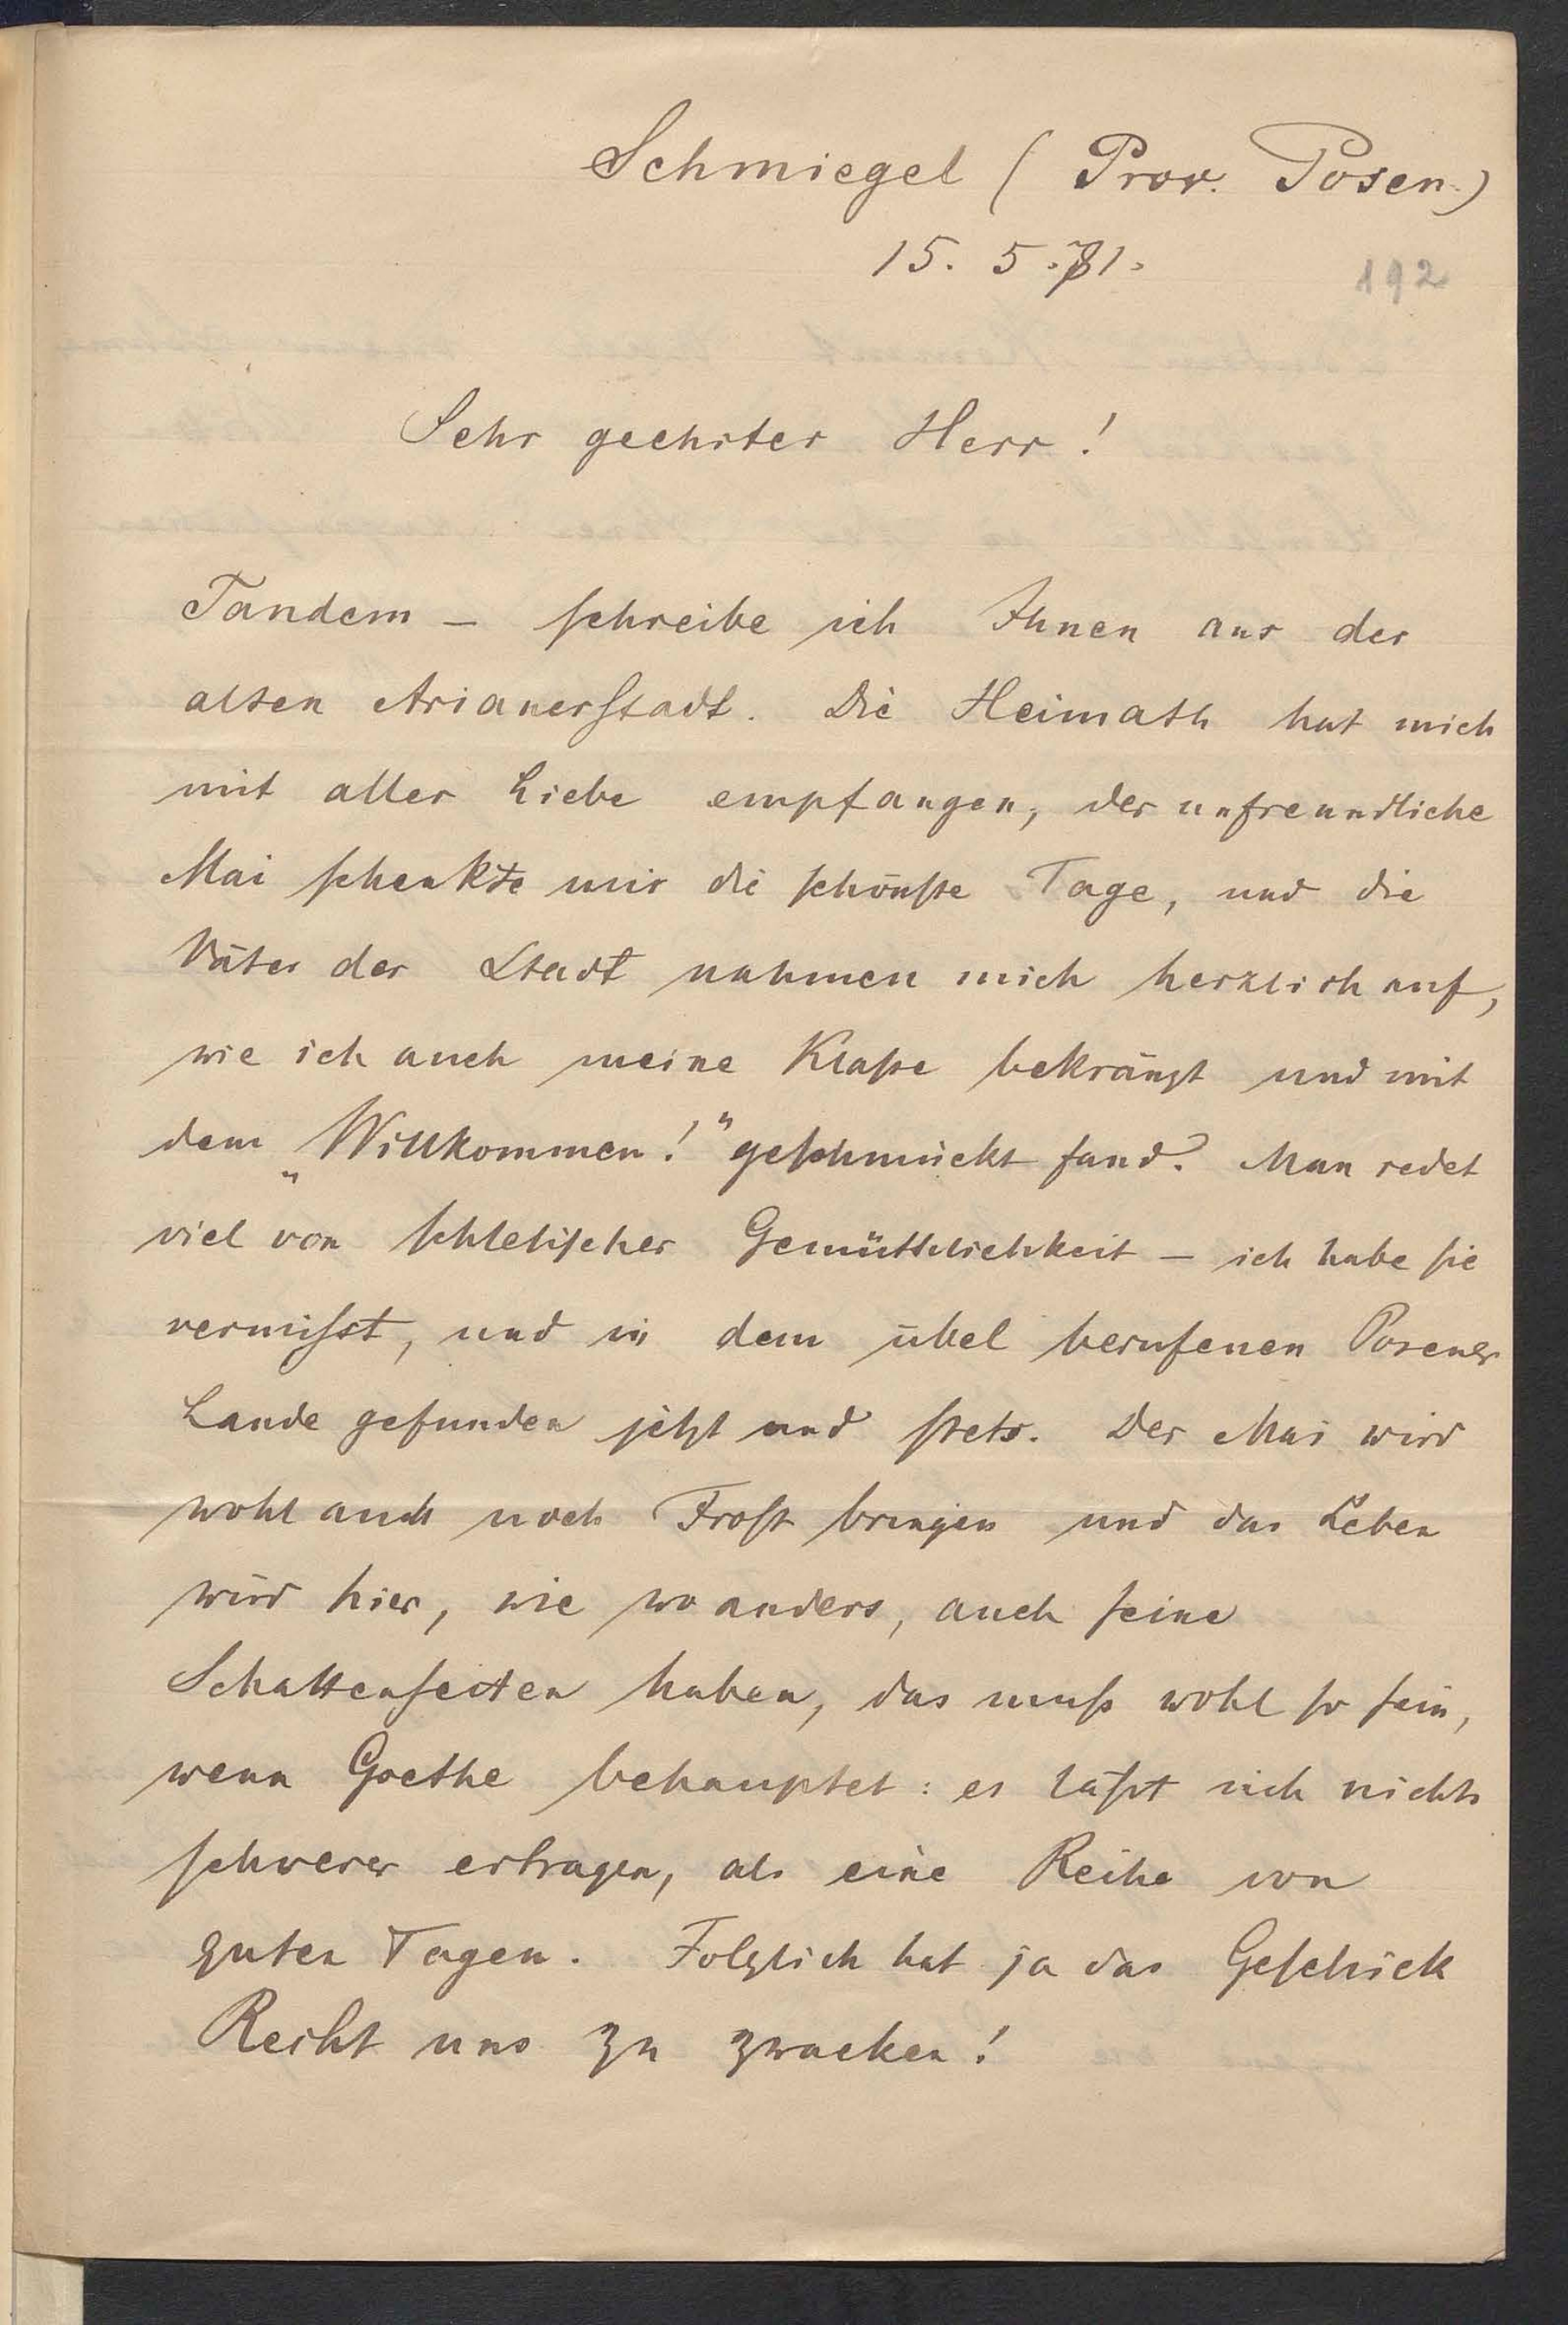 Schmiegel (Prov. Posen.)
15. 5. 81.
192
Sehr geehrter Herr!
Tandem – schreibe ich Ihnen aus der
alten Arianerstadt. Die Heimath hat mich
mit aller Liebe empfangen, der unfreundliche
Mai schenkte mir die schönste Tage, und die
Väter der Stadt nahmen mich herzlich auf,
wie ich auch meine Klasse bekränzt und mit
dem „Willkommen!" geschmückt fand. Man redet
viel von schlesischer Gemüthlichkeit – ich habe sie
vermisst, und in dem übel berufenen Posener
Lande gefunden jetzt und stets. Der Mai wird
wohl auch noch Frost bringen und das Leben
wird hier, wie wo anders, auch seine
Schattenseiten haben, das muss wohl so sein,
wenn Goethe behauptet: es lässt sich nichts
schwerer ertragen, als eine Reihe von
guten Tagen. Folglich hat ja das Geschick
Recht uns zu zwacken!